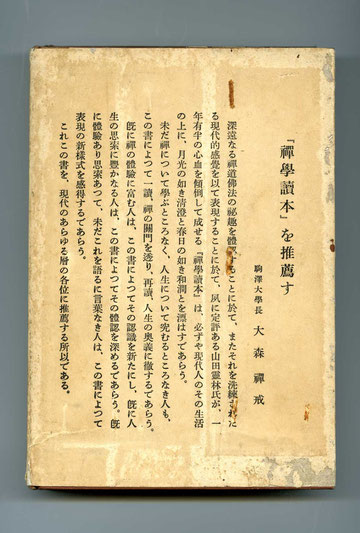 『禪學讀本』を推薦す
駒澤大學長 大森禪戒
深遠なる禪道佛法の祕趣を體
ることに於て、またそれを洗練された
る現代的感覺を以て表現することに於て、夙に定評ある山田靈林氏が、一
年有半の心血を傾倒して成せる『禪學讀本』は、必ずや現代人のその生活
の上に、月光の如き清澄と春日の如き和潤とを濺ぐであらう。
未だ禪について學ぶところなく、人生について究むるところなき人も、
この書によつて一讀、禪の關門を透り、再讀、人生の奥義に徹するであらう。
既に禪の體驗に富む人は、この書によつてその認識を新たにし、既に人
生の思索に豐かなる人は、この書によつてその體認を深めるであらう。既
に體驗あり思索あつて、未だこれを語るに言葉なき人は、この書によつて
表現の新樣式を感得するであらう。
これこの書を、現代のあらゆる層の各位に推薦する所以である。